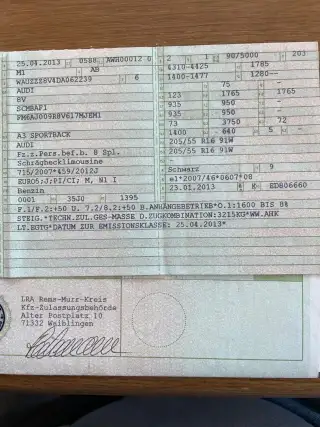 25.04.2013 0588 AWH00012 0
M1 AB
WAUZZZ8V4DA062239 6
AUDI
8V
SCMBAF1
FM6AJ009R8V617MJEM1
A3 SPORTBACK
AUDI
Fz.z.Pers.bef.b. 8 Spl.
SchrägheckLimousine
715/2007*459/2012J
EURO5;J;PI/CI; M, N1 I
Benzin
0001 35J0 1395
2 1 90/5000 203
4310-4425 1785
1400-1477 1280--
- 75 -
123 1765 1765
935 950 -
935 950 -
73 3750 72
1400 - 640 5 -
205/55 R16 91W
205/55 R16 91W
-
-
Schwarz 9
e1*2007/46*0607*08
23.01.2013 K- ED806660
F.1/F.2:+50 D. 7.2/8.2:+50 B.ANHÄNGEBETRIEB*O.1:1600 BIS 8%
STEIG.*TECHN.ZUL.GES-MASSE D.ZUGKOMBINATION:3215KG*WW.AHK
LT.EGTG*DATUM ZUR EMISSIONSKLASSE: 25.04.2013*
LRA Rems-Murr-Kreis
Kfz-Zulassungsbehörde
Alter Postplatz 10
71332 Waiblingen